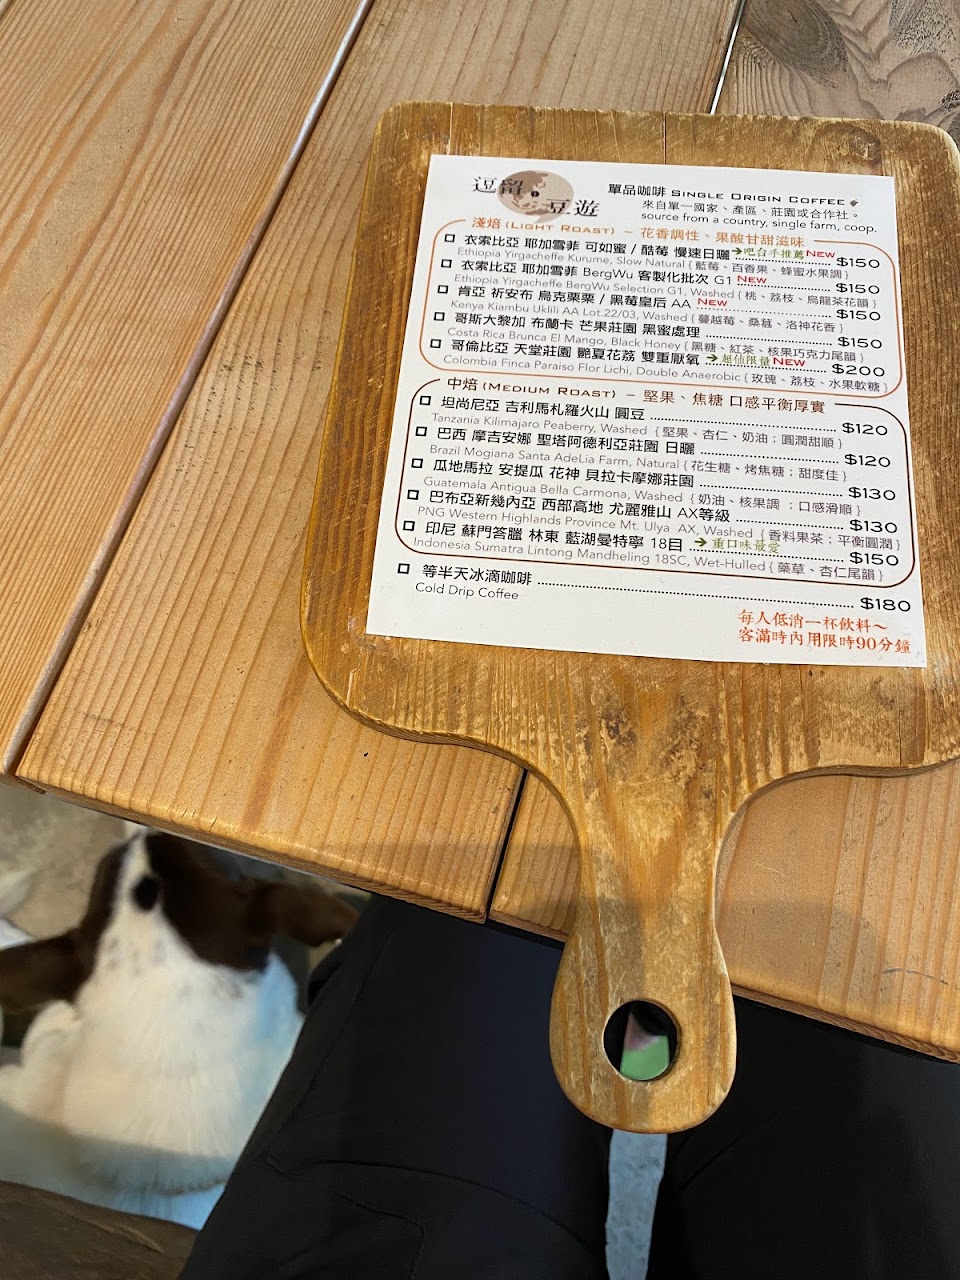 逗留 豆遊
單品咖啡 SINGLE ORIGIN COFFEE
來自單一國家、產區、莊園或合作社。
source from a country, single farm, coop.
淺焙 (LIGHT ROAST) – 花香調性、果酸甘甜滋味
衣索比亞 耶加雪菲 可如蜜 / 酷莓 慢速日曬 ➔吧台手推薦 NEW $150
Ethiopia Yirgacheffe Kurume, Slow Natural { 藍莓、百香果、蜂蜜水果調 }
衣索比亞 耶加雪菲 BergWu 客製化批次 G1 NEW $150
Ethiopia Yirgacheffe BergWu Selection G1, Washed { 桃、荔枝、烏龍茶花韻 }
肯亞 祈安布 烏克栗栗 / 黑莓皇后 AA NEW $150
Kenya Kiambu Uklili AA Lot.22/03, Washed { 蔓越莓、桑葚、洛神花香 }
哥斯大黎加 布蘭卡 芒果莊園 黑蜜處理 $150
Costa Rica Brunca El Mango, Black Honey { 黑糖、紅茶、核果巧克力尾韻 }
哥倫比亞 天堂莊園 鸝夏花荔 雙重厭氧 ➔超仙限量 NEW $200
Colombia Finca Paraiso Flor Lichi, Double Anaerobic { 玫瑰、荔枝、水果軟糖 }
中焙 (MEDIUM ROAST) – 堅果、焦糖 口感平衡厚實
坦尚尼亞 吉利馬札羅火山 圓豆 $120
Tanzania Kilimajaro Peaberry, Washed { 堅果、杏仁、奶油；圓潤甜順 }
巴西 摩吉安娜 聖塔阿德利亞莊園 日曬 $120
Brazil Mogiana Santa AdeLia Farm, Natural { 花生糖、烤焦糖；甜度佳 }
瓜地馬拉 安提瓜 花神 貝拉卡摩娜莊園 $130
Guatemala Antigua Bella Carmona, Washed { 奶油、核果調 ；口感滑順 }
巴布亞新幾內亞 西部高地 尤麗雅山 AX等級 $130
PNG Western Highlands Province Mt. Ulya AX, Washed { 香料果茶；平衡圓潤 }
印尼 蘇門答臘 林東 藍湖曼特寧 18目 ➔ 重口味最愛 $150
Indonesia Sumatra Lintong Mandheling 18SC, Wet-Hulled { 藥草、杏仁尾韻 }
等半天冰滴咖啡 $180
Cold Drip Coffee
每人低消一杯飲料～
客滿時內用限時90分鐘